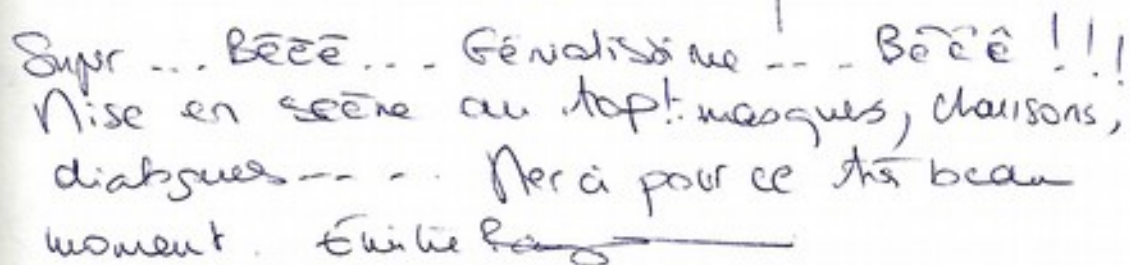 Super ... Bêêê ... Génialissime ... Bêêê !!!
Mise en scène au top! masques, chansons,
dialogues ---- Merci pour ce très beau
moment. Émilie